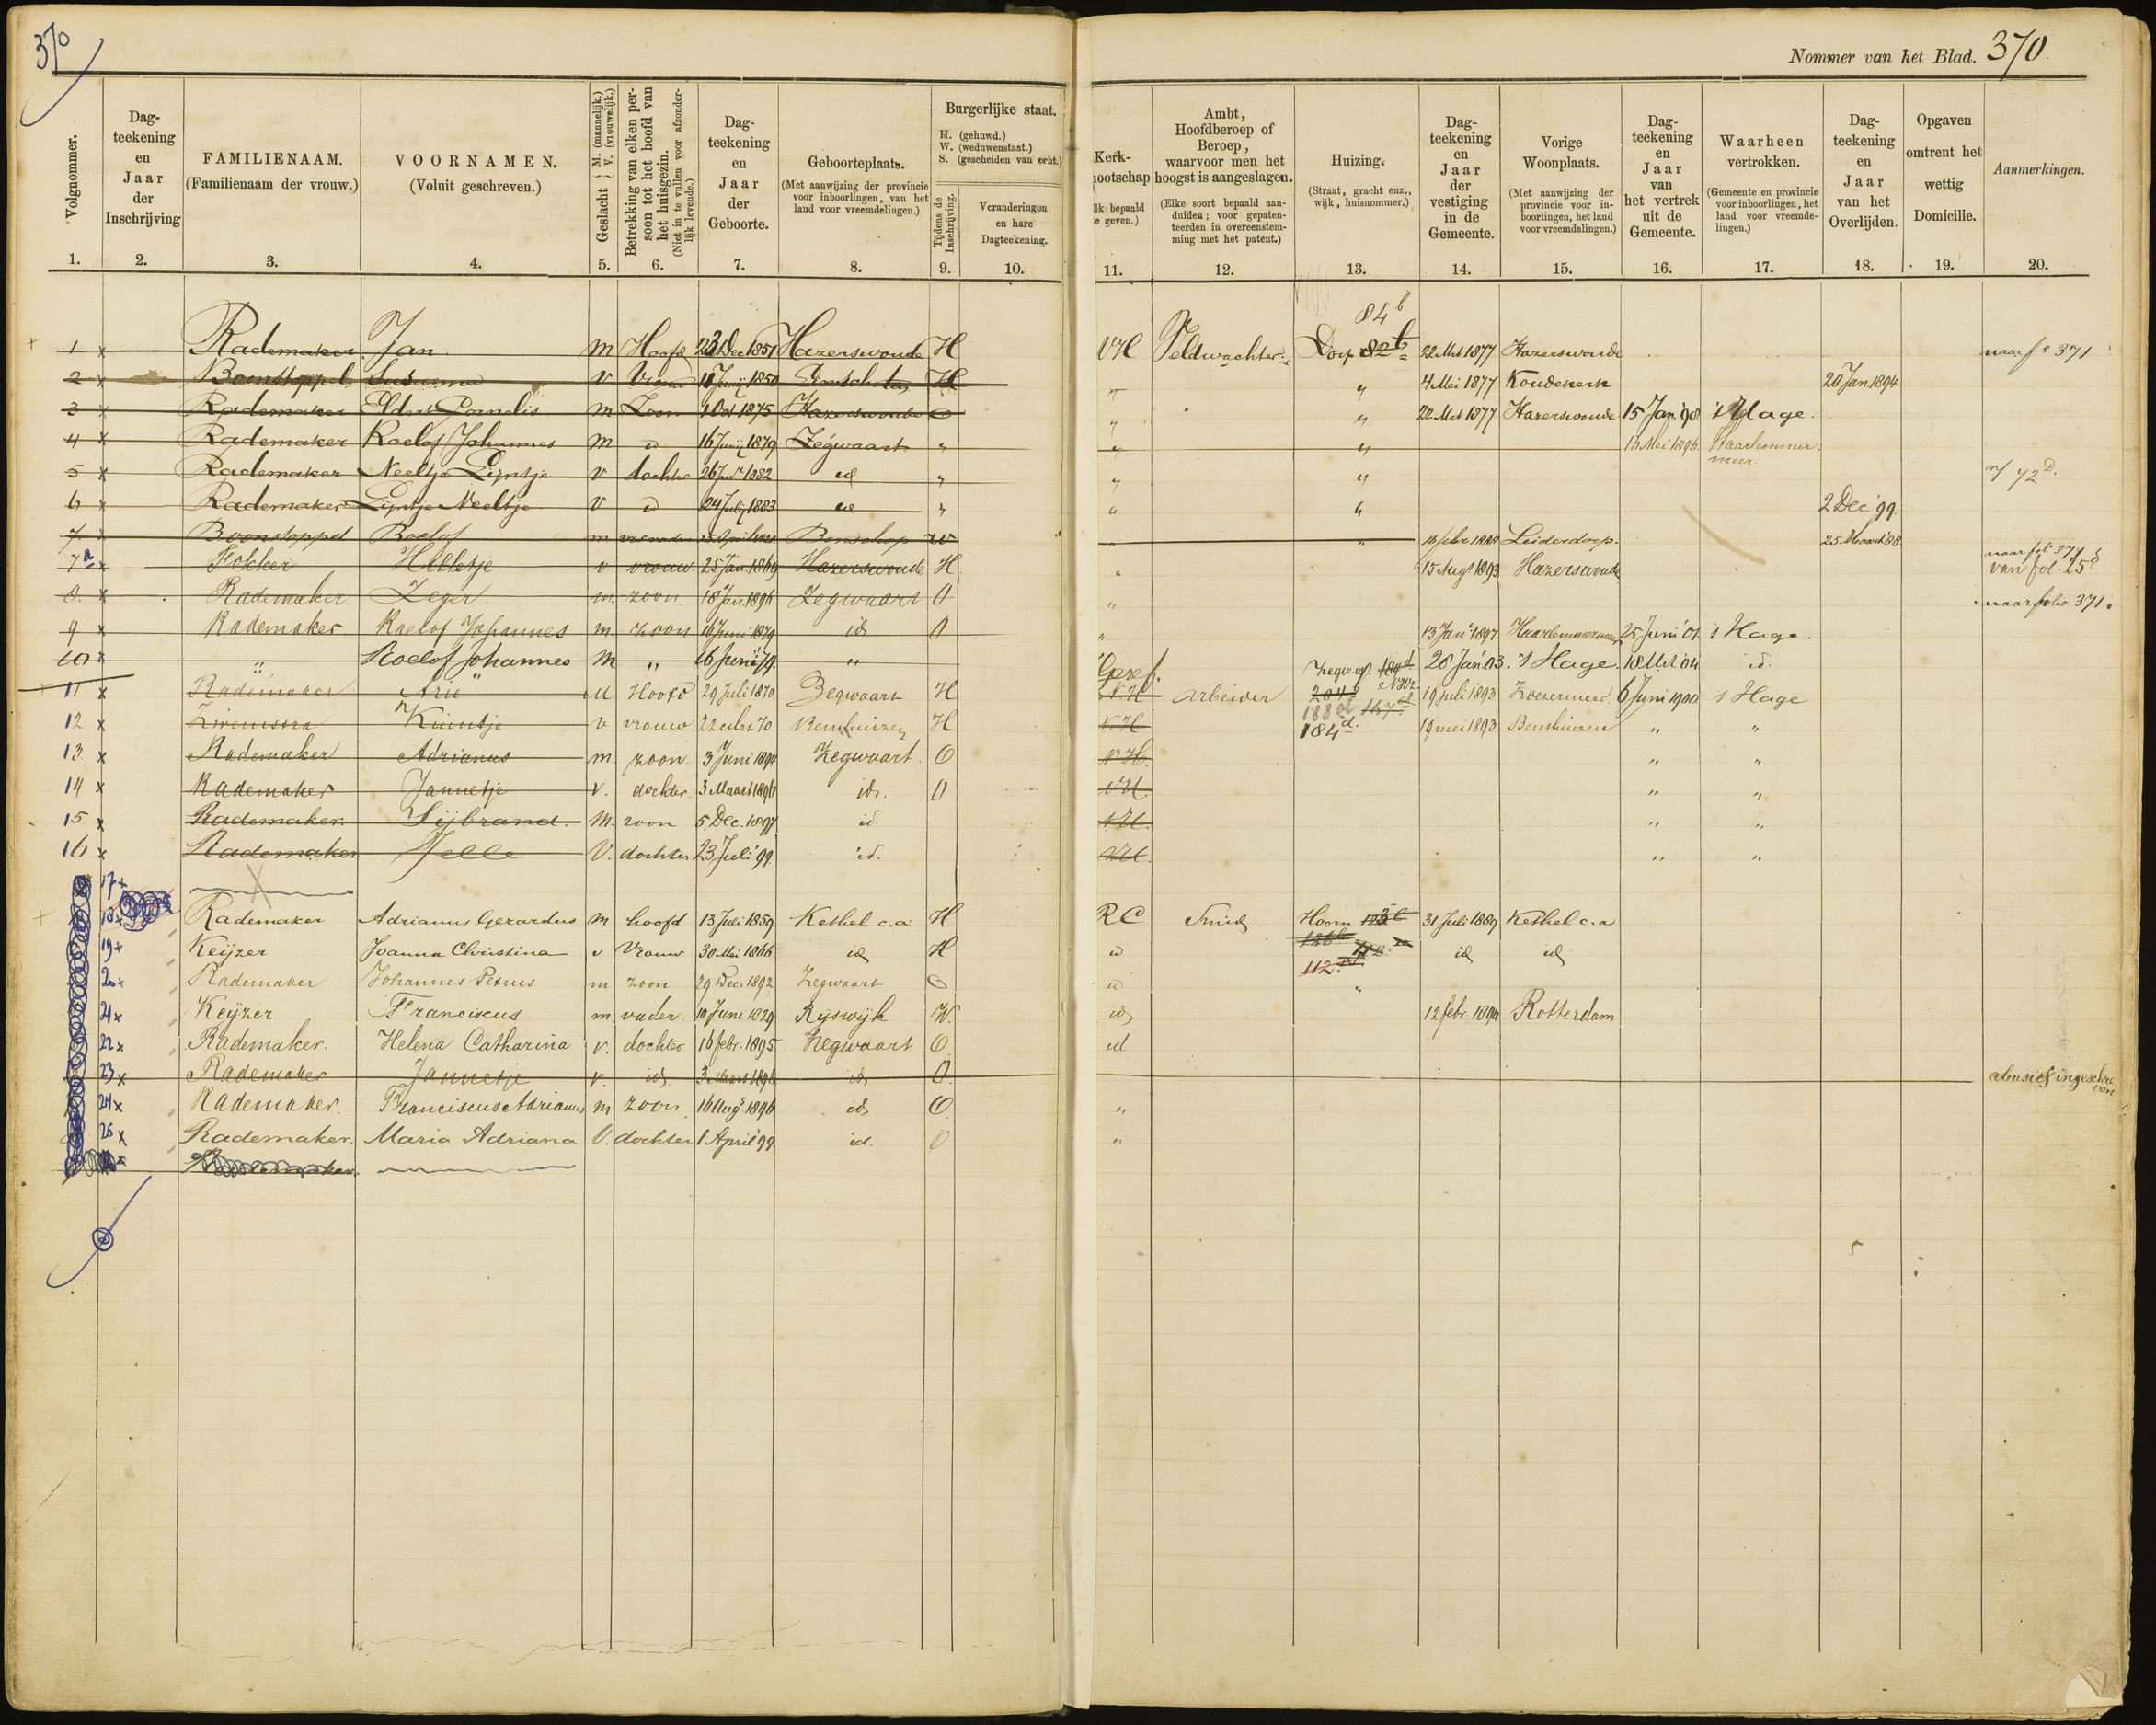 370
Nommer van het Blad. 370.
Volgnommer.
1.
Dag-
teekening
en
Jaar
der
Inschrijving
2.
FAMILIENAAM.
(Familienaam der vrouw.)
3.
VOORNAMEN.
(Voluit geschreven.)
4.
Geslacht { M. (mannelijk.) V. (vrouwelijk.)
5.
Betrekking van elken per-
soon tot het hoofd van
het huisgezin.
(Niet in te vullen voor afzonder-
lijk levende.)
6.
Dag-
teekening
en
Jaar
der
Geboorte.
7.
Geboorteplaats.
(Met aanwijzing der provincie
voor inboorlingen, van het
land voor vreemdelingen.)
8.
Burgerlijke staat.
H. (gehuwd.)
W. (weduwenstaat.)
S. (gescheiden van echt.)
Tijdens de
Inschrijving.
9.
Veranderingen
en hare
Dagteekening.
10.
Kerk-
nootschap
lk bepaald
e geven.)
11.
Ambt,
Hoofdberoep of
Beroep,
waarvoor men het
hoogst is aangeslagen.
(Elke soort bepaald aan-
duiden; voor gepaten-
teerden in overeenstem-
ming met het patént.)
12.
Huizing.
(Straat, gracht enz.,
wijk, huisnommer.)
13.
Dag-
teekening
en
Jaar
der
vestiging
in de
Gemeente.
14.
Vorige
Woonplaats.
(Met aanwijzing der
provincie voor in-
boorlingen, het land
voor vreemdelingen.)
15.
Dag-
teekening
en
Jaar
van
het vertrek
uit de
Gemeente.
16.
Waarheen
vertrokken.
(Gemeente en provincie
voor inboorlingen, het
land voor vreemde-
lingen.)
17.
Dag-
teekening
en
Jaar
van het
Overlijden.
18.
Opgaven
omtrent het
wettig
Domicilie.
19.
Aanmerkingen.
20.
84 b
1 x Rademaker Jan. m Hoofd 23 Dec 1851 Hazerswoude H NH Veldwachter Dorp 82 b 22 Mrt 1877 Hazerswoude naar fo 371
2 x Boonstoppel Susanna v Vrouw 1850 H " " 4 Mei 1877 Koudekerk 20 Jan. 1894
3 x Rademaker Eldert Cornelis m Zoon 1 Oct 1875 Hazerswoude O " " 22 Mrt 1877 Hazerswoude 15 Jan. '98 's Hage.
4 x Rademaker Roelof Johannes m d 16 Junij 1879 Zegwaart " " " 16 Mei 1896 Haarlemmer-
meer.
5 x Rademaker Neeltje Lijntje v dochter 1882 id " " " 72 D.
6 x Rademaker Lijntje Neeltje v d 24 July 1883 id " " " 2 Dec '99
7 x Boonstoppel Roelof m April Benschop W " " 1888 Leiderdorp. 25 Maart '88
7a x Fokker Hilletje v vrouw 25 Jan. 1869 Hazerswoude H " 15 Aug 1893 Hazerswoude naar fol 371
van fol. 25
8. x Rademaker Zeger m. zoon 18 Jan. 1896 Zegwaart O " naar folio 371.
9 x Rademaker Roelof Johannes m zoon 16 Juni 1879 id O " 13 Jan 1897. Haarlemmermeer 25 Juni '01 's Hage.
10 x " Roelof Johannes M " 16 Juni '79. " Geref. 28 Jan '03. 's Hage. 18 Mrt '04 id.
11 x Rademaker Arie M Hoofd 29 Juli 1870 Zegwaart H NH arbeider Zegw. 19 Juli 1893 Zoetermeer 6 Juni 1900 's Hage
12 x Kniertje v vrouw 70 Benthuizen H NH 188 d 167 184 d. 19 mei 1893 Benthuizen " "
13 x Rademaker Adrianus m zoon. 3 Juni 1894 Zegwaart O NH. " "
14 x Rademaker Jannetje v. dochter. 3 Maart 1896 id. O NH. " "
15 x Rademaker. Sijbrand. M. zoon 5 Dec. 1897 id. NH. " "
16 x Rademaker Jelle V. dochter 23 Juli '99 id. NH. " "
17 x
18 x Rademaker Adrianus Gerardus m hoofd 13 Juli 1859 Kethel c.a H RC Smid Hoorn 31 Juli 1889 Kethel c.a
19 x Keijzer Joanna Christina v Vrouw 30 Mei 1866 id H id 112. id id
20 x Rademaker Johannes Petrus m zoon 29 Dec. 1892 Zegwaart O id "
21 x Keijzer Franciscus m vader 10 Juni 1829 Rijswijk W. id 12 febr. 1894 Rotterdam
22 x Rademaker. Helena Catharina v. dochter 16 febr. 1895 Zegwaart O id
23 x Rademaker Jannetje v. id. 3 Maart 1896 id O. abusief ingeschre-
ven
24 x Rademaker. Franciscus Adrianus m zoon 16 Aug 1896 id O "
25 x Rademaker. Maria Adriana V. dochter 1 April '99 id. O "
Rademaker.